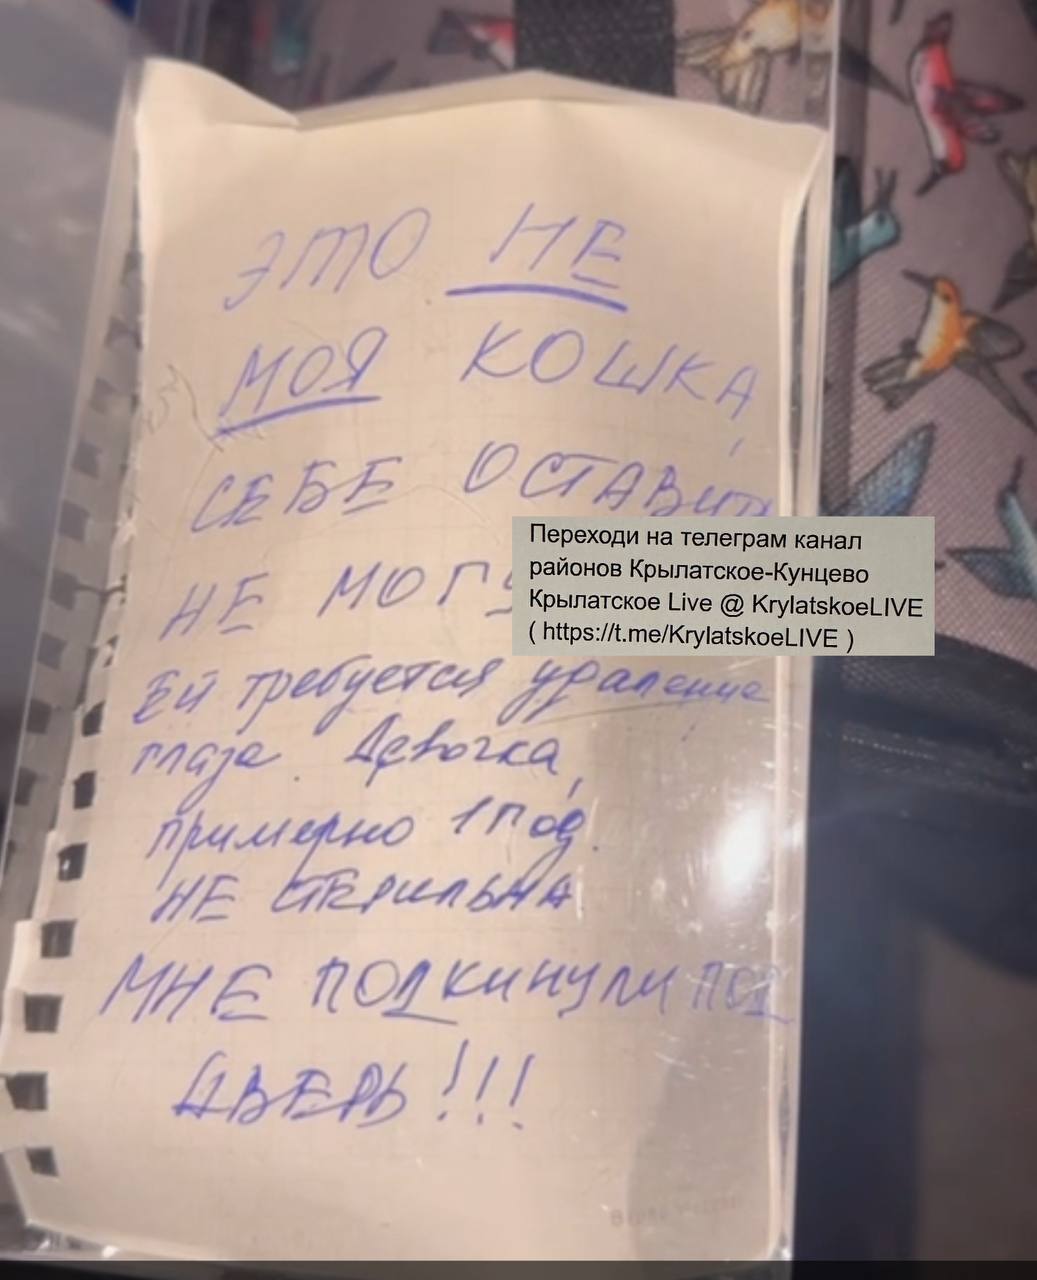 ЭТО НЕ
МОЯ КОШКА,
СЕБЕ ОСТАВИТЬ
НЕ МОГУ
Переходи на телеграм канал
районов Крылатское-Кунцево
Крылатское Live @ KrylatskoeLIVE
( https://t.me/KrylatskoeLIVE )
Ей требуется удаление
глаза. Девочка,
примерно 1 год.
НЕ СТЕРИЛЬНА
МНЕ ПОДКИНУЛИ ПОД
ДВЕРЬ!!!